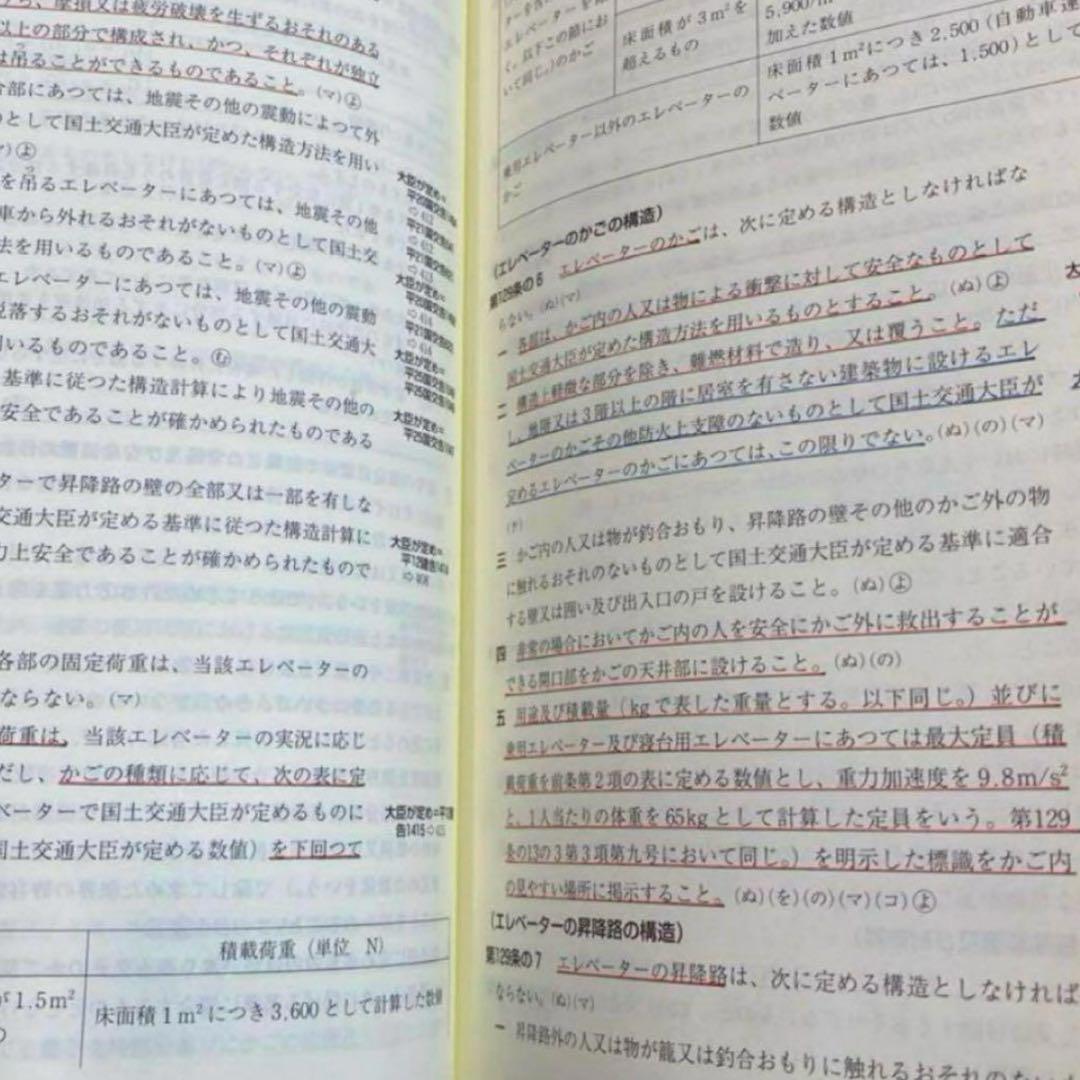 、摩損又は疲労破壊を生ずるおそれのある
以上の部分で構成され、かつ、それぞれが独立
は吊ることができるものであること。(マ)㋵
部にあつては、地震その他の震動によつて外
のとして国土交通大臣が定めた構造方法を用い
)㋵
を吊るエレベーターにあつては、地震その他
車から外れるおそれがないものとして国土交
法を用いるものであること。(マ)㋵
エレベーターにあつては、地震その他の震動
脱落するおそれがないものとして国土交通大
用いるものであること。㋰
基準に従つた構造計算により地震その他の
安全であることが確かめられたものである
ターで昇降路の壁の全部又は一部を有しな
交通大臣が定める基準に従つた構造計算に
力上安全であることが確かめられたもので
各部の固定荷重は、当該エレベーターの
ならない。(マ)
荷重は、当該エレベーターの実況に応じ
だし、かごの種類に応じて、次の表に定
ベーターで国土交通大臣が定めるものに
国土交通大臣が定める数値)を下回つて
積載荷重(単位 N)
が1.5m²
床面積1m²につき3,600として計算した数値
大臣が定め=
大臣が定め=
大臣が定め=
大臣が定め=
大臣が定め=
大臣が定め=平12建
告1415⇨
床面積が3m²を
超えるもの
加えた数値
床面積1m²につき2,500(自動車運
ベーターにあつては、1,500)として
数値
乗用エレベーター以外のエレベーターの
かご
(エレベーターのかごの構造)
第129条の6 エレベーターのかごは、次に定める構造としなければな
らない。(ぬ)(マ)
一 各部は、かご内の人又は物による衝撃に対して安全なものとして
国土交通大臣が定めた構造方法を用いるものとすること。(ぬ)㋵
二 構造上軽微な部分を除き、難燃材料で造り、又は覆うこと。ただ
し、地階又は3階以上の階に居室を有さない建築物に設けるエレ
ベーターのかごその他防火上支障のないものとして国土交通大臣が
定めるエレベーターのかごにあつては、この限りでない。(ぬ)(の)(マ)
三 かご内の人又は物が釣合おもり、昇降路の壁その他のかご外の物
に触れるおそれのないものとして国土交通大臣が定める基準に適合
する壁又は囲い及び出入口の戸を設けること。(ぬ)㋵
四 非常の場合においてかご内の人を安全にかご外に救出することが
できる開口部をかごの天井部に設けること。(ぬ)(の)
五 用途及び積載量(kgで表した重量とする。以下同じ。)並びに
乗用エレベーター及び寝台用エレベーターにあつては最大定員(積
載荷重を前条第2項の表に定める数値とし、重力加速度を9.8m/s²
と、1人当たりの体重を65kgとして計算した定員をいう。第129
条の13の3第3項第九号において同じ。)を明示した標識をかご内
の見やすい場所に掲示すること。(ぬ)(を)(の)(マ)(コ)㋵
(エレベーターの昇降路の構造)
第129条の7 エレベーターの昇降路は、次に定める構造としなければ
ならない。(ぬ)(マ)
一 昇降路外の人又は物が籠又は釣合おもりに触れるおそれのない